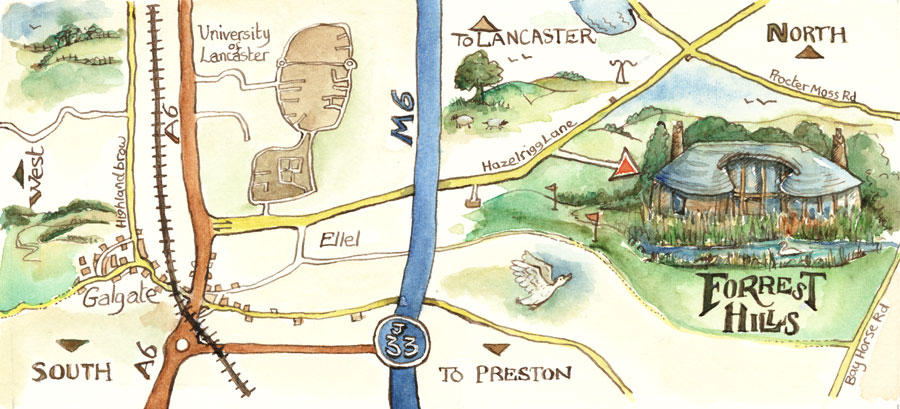 University
of
Lancaster
TO LANCASTER
NORTH
Procter Moss Rd
A6
M6
Hazelrigg Lane
WEST
Highlandbrow
Ellel
Galgate
FORREST
HILLS
J
33
SOUTH
A6
TO PRESTON
Bay Horse Rd